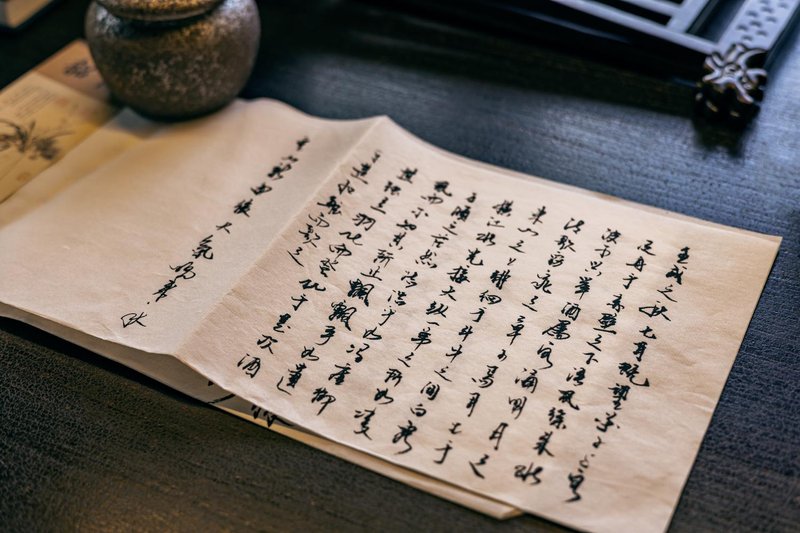 壬戌之秋七月既望苏子与客
泛舟于赤壁之下清风徐来水
波不兴举酒属客诵明月之
诗歌窈窕之章少焉月出于
东山之上徘徊于斗牛之间白露
横江水光接天纵一苇之所如凌
万顷之茫然浩浩乎如冯虚御
风而不知其所止飘飘乎如遗
世独立羽化而登仙于是饮酒
而歌之
天气 秋